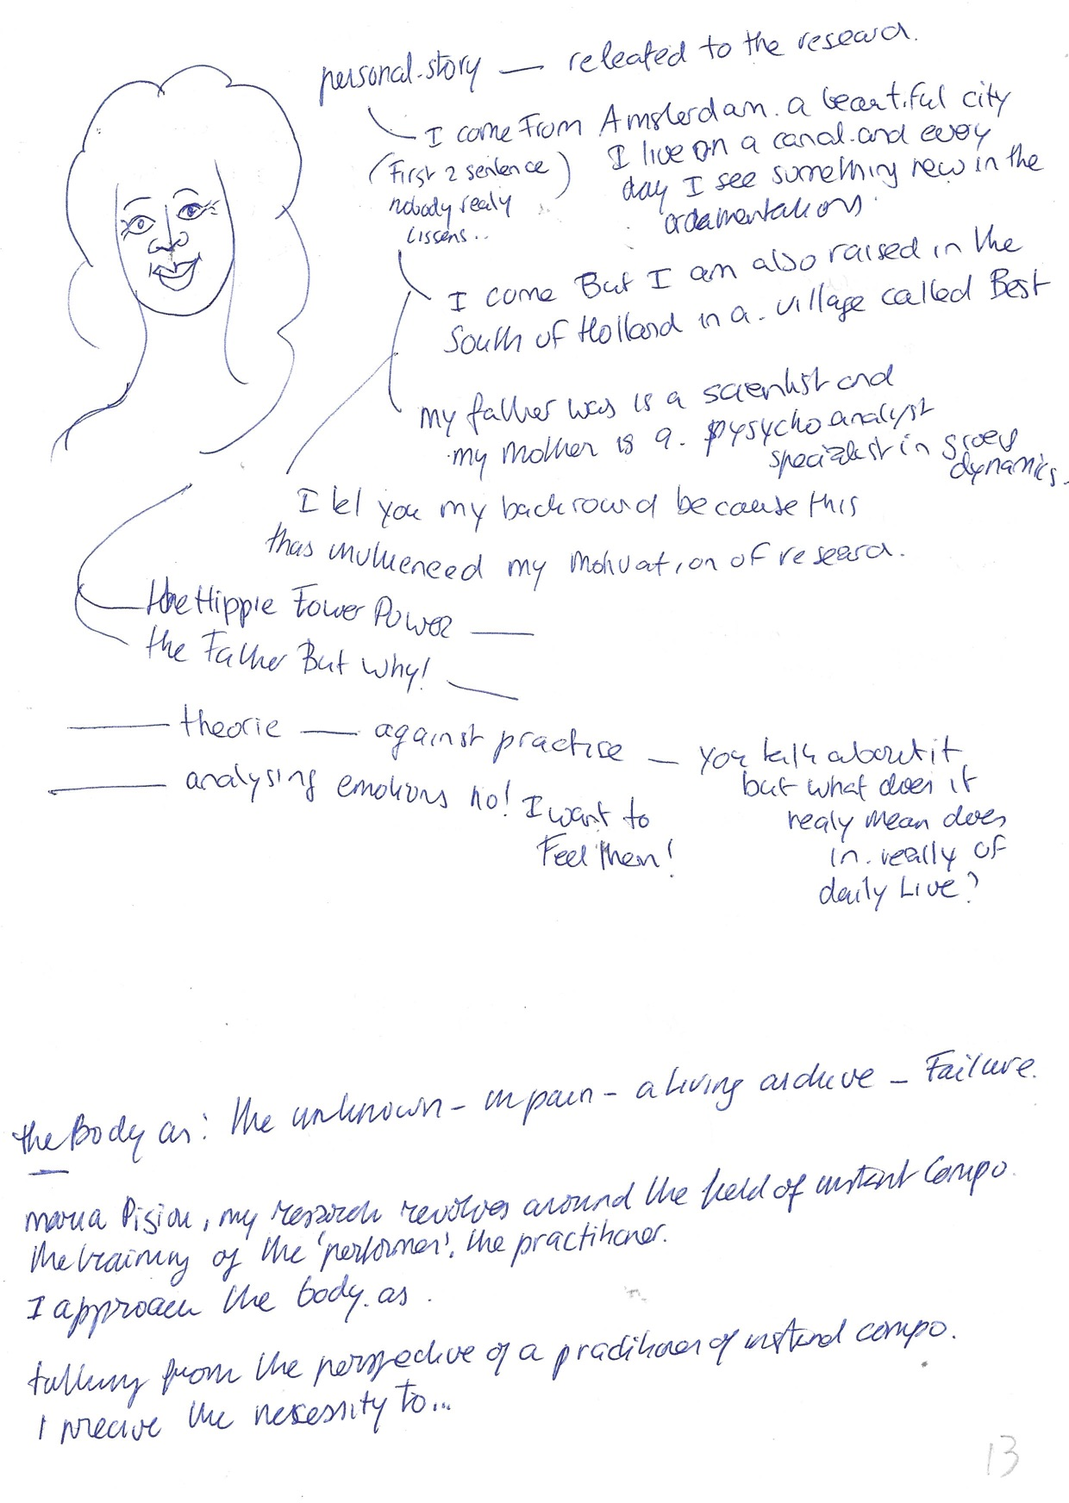 personal.story — releated to the research.
I come From Amsterdam. a beautiful city
I live on a canal. and every
day I see something new in the
ordamentations.
(First 2 sentence
nobody realy
Lissens..)
I come But I am also raised in the
South of Holland in a. village called Best
my father was is a scientist and
my mother is a. psycho analyst
specialist in groep
dynamics.
I tel you my backround because this
has my motivation of research.
the Hippie Fower Power —
the Father But why! —
— theorie — against practise — you talk about it
but what does it
realy mean does
in. really of
daily Live?
— analysing emotions no! I want to
Feel them!
the Body as: the unknown - in pain - a living archive - Failure.
maria, my research revolves around the field of instant Compo.
the training of the 'performer'. the practitioner.
I approach the body. as .
talking from the perspective of a practitioner of instand compo.
I the necessity to...
13